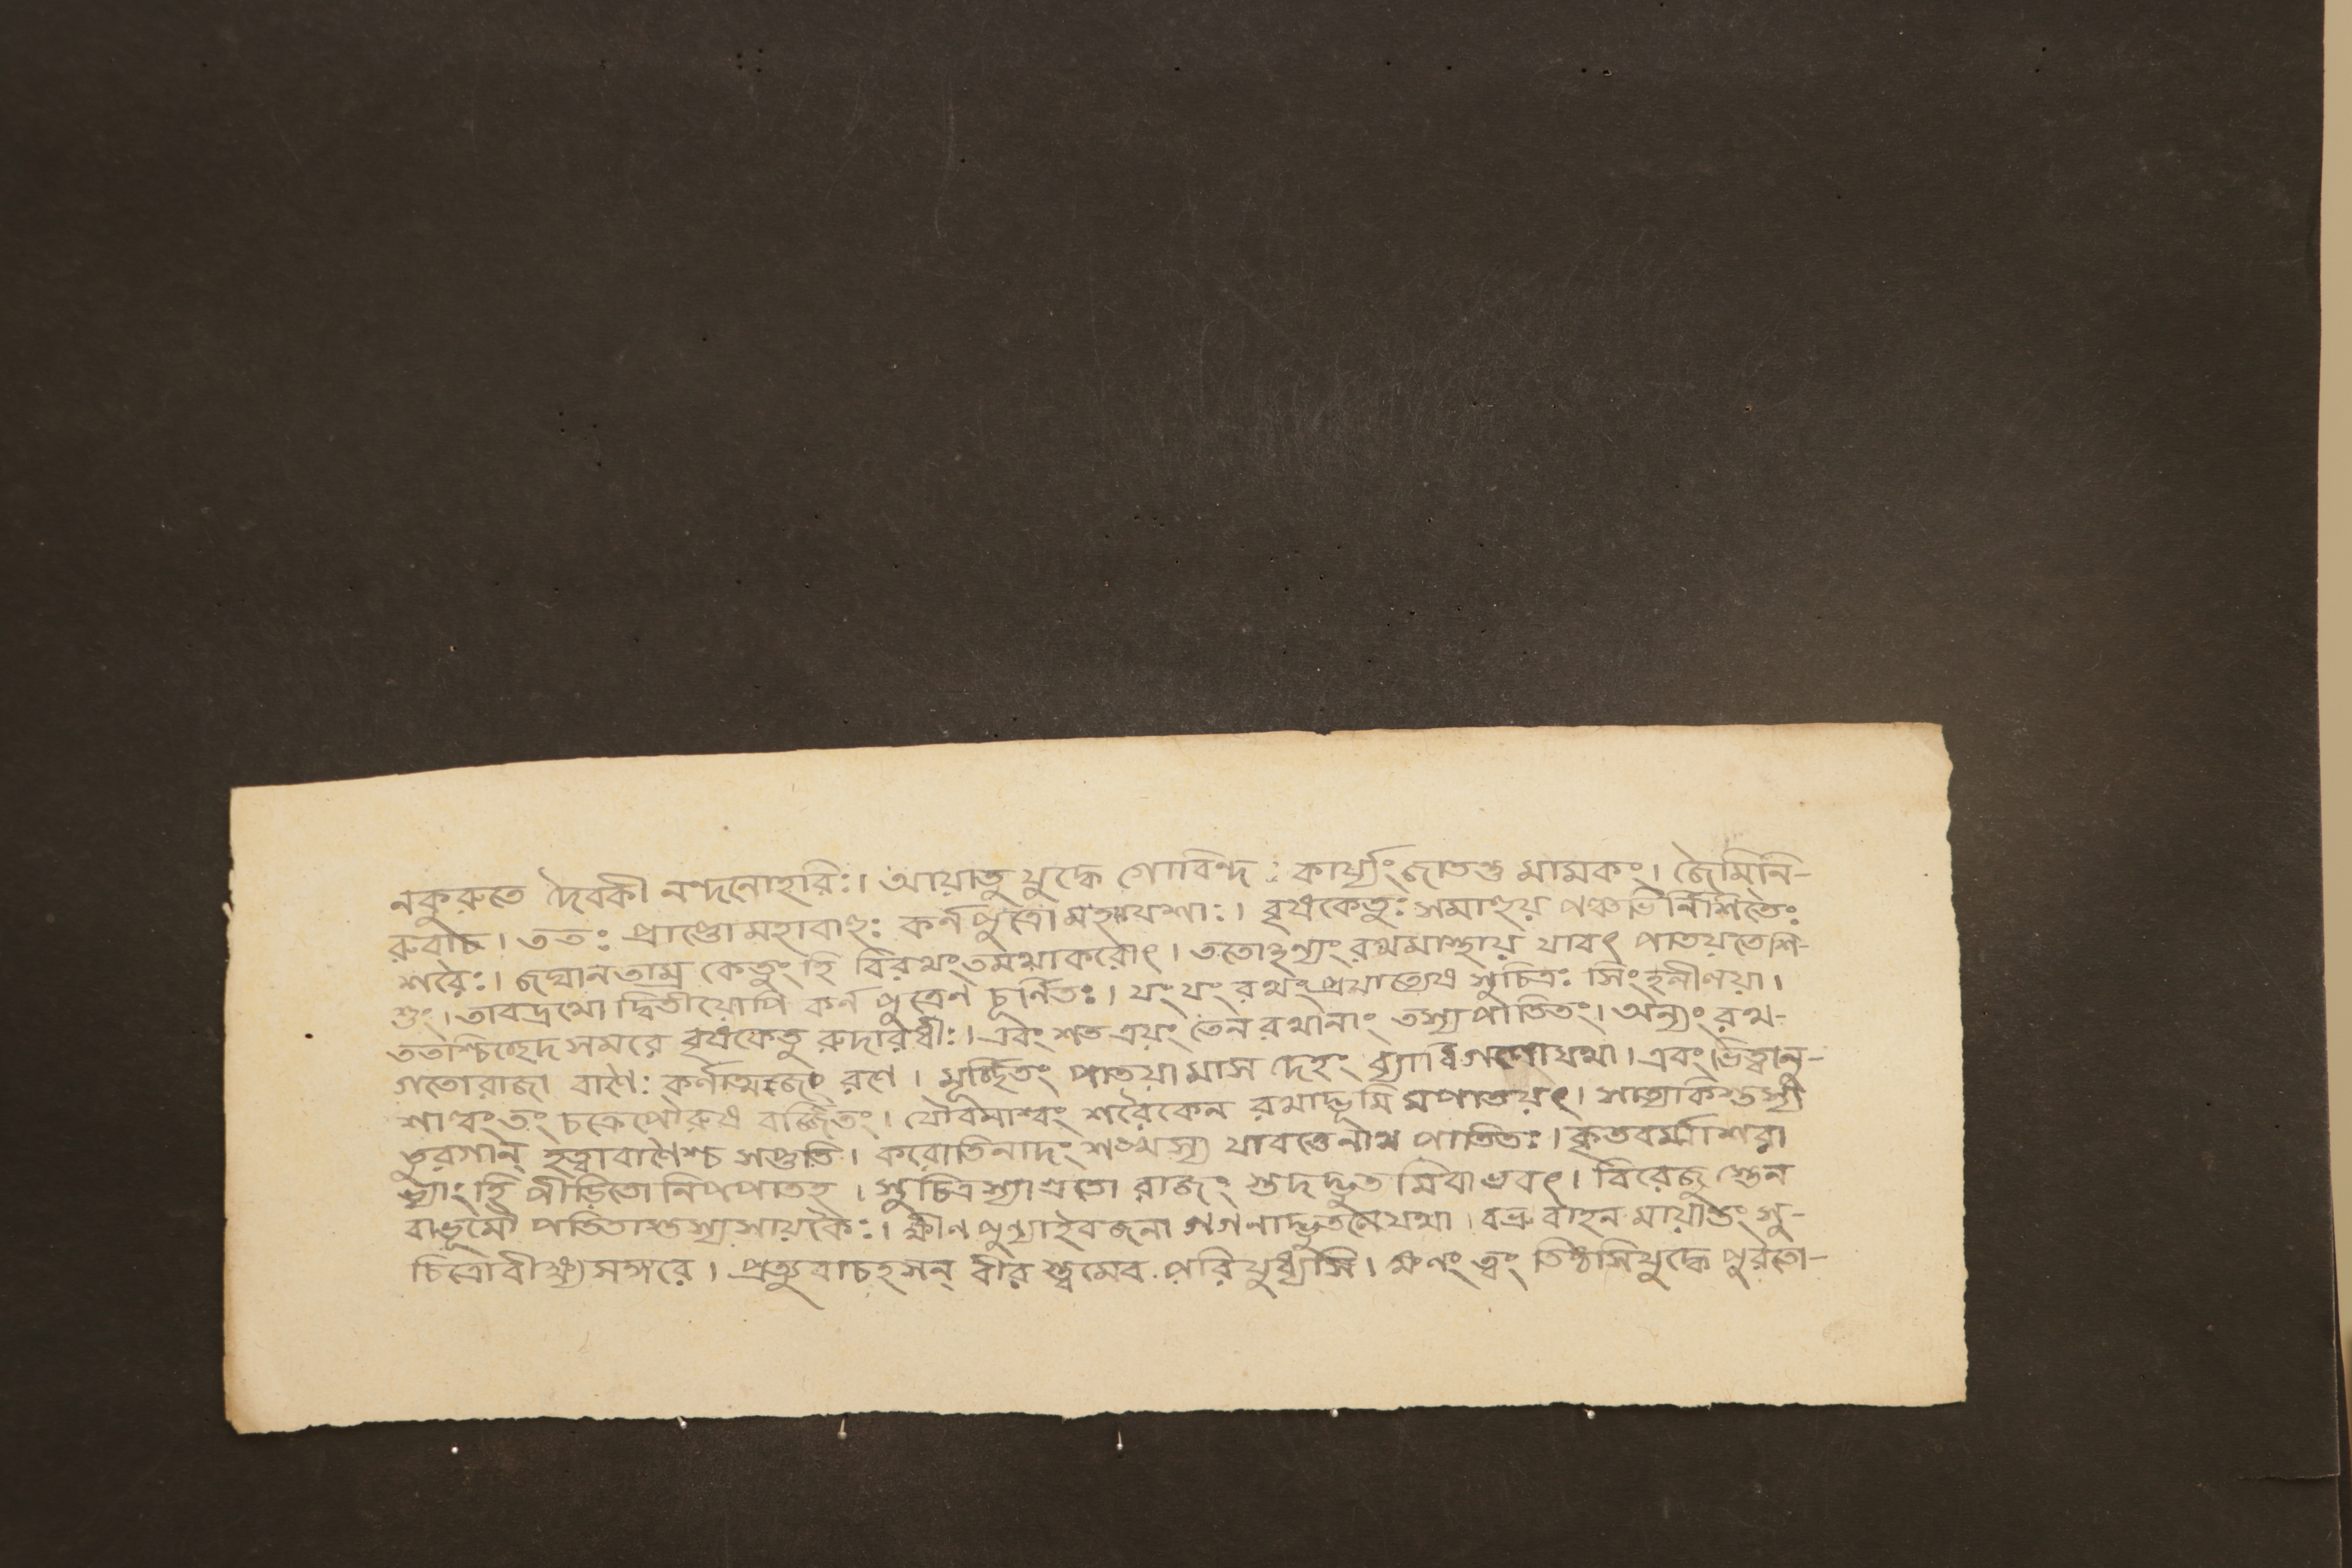 নকুরুতে দৈবকী নন্দনোহরিঃ। আয়াতু যুদ্ধে গোবিন্দ : কার্য্যং জাতন্তু মামকং। জৈমিনি-
রুবাচ। ততঃ প্রাপ্তো মহাবাহুঃ কর্নপুত্রো মহাযশাঃ। বৃষকেতুঃ সমাহুয় পঞ্চভি র্নিশিতৈঃ
শরৈঃ। জঘানতাম্র কেতুং হি বিরথং তমথাকরোৎ। ততোহন্যং রথমাস্থায় যাবৎ পাতয়তেশি-
শুং। তাবদ্রথো দ্বিতীয়োপি কর্ন পুত্রেণ চূর্নিতঃ। যং যং রথং প্রযাত্যেষ সুচিত্রঃ সিংহনীণয়া।
ততশ্চিচ্ছেদ সমরে বৃষকেতু রুদারধীঃ। এবং শত ত্রয়ং তেন রথানাং তস্যপাতিতং। অন্যং রথ-
গতোরাজা বাণৈঃ কর্নাত্মজং রণে। মূর্চ্ছিতং পাতয়ামাস দেহং ব্যাধিগণোযথা। এবং ভিত্বানু-
শাল্বং তং চক্রেপৌরুষ বর্জ্জিতং। যৌবনাশ্বং শরৈকেন রথাদ্ভূমি মপাতয়ৎ। সাত্যকিস্তস্য
তুরগান্ হত্বাবাণৈশ্চ সপ্ততি। করোতিনাদং শঙ্খস্য যাবত্তেনাথ পাতিতঃ। কৃতবর্ম্মাশরা
ভ্যাং হি পীড়িতো নিপপাতহ। সুচিত্রস্যাগ্রতো রাজং স্তদদ্ভুত মিবাভবৎ। বিরেজু স্তেন
বাভূমৌ পতিতাস্তস্যসায়কৈঃ। ক্ষীণ পুণ্যাইবজনা গগণাদ্ভুতলেযথা। বভ্রুবাহন মায়ান্তং সু-
চিত্রোবীক্ষ্য সঙ্গরে। প্রত্যুবাচহসন্ বীর স্ত্বমেব পরিযুধ্যসি। ক্ষণং ত্বং তিষ্ঠসিযুদ্ধে পুরতো-